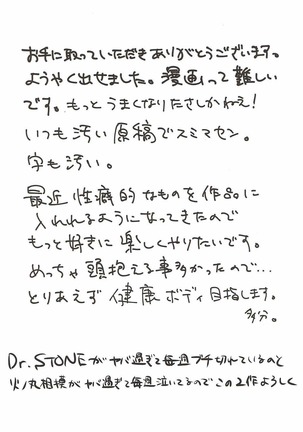 お手に取っていただきありがとうございます。
ようやく出せました。漫画って難しい
です。もっとうまくなりたさしかねぇ!
いつも汚い原稿でスミマセン。
字も汚い。
最近性癖的なものを作品に
入れれるようになってきたので
もっと好きに楽しくやりたいです。
めっちゃ頭抱える事多かったので…
とりあえず健康ボディ目指します。
多分。
Dr.STONEがヤバ過ぎて毎週ブチ切れているのと
火ノ丸相撲がヤバ過ぎて毎週泣いてるのでこの2作よろしく